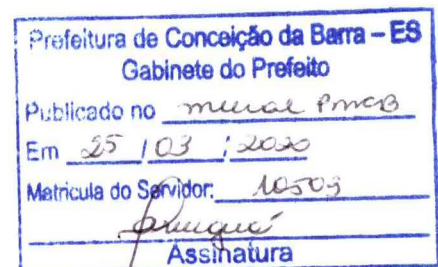 Prefeitura de Conceição da Barra – ES
Gabinete do Prefeito
Publicado no mural PMCB
Em 25 / 03 / 2020
Matricula do Servidor: 10509
Assinatura